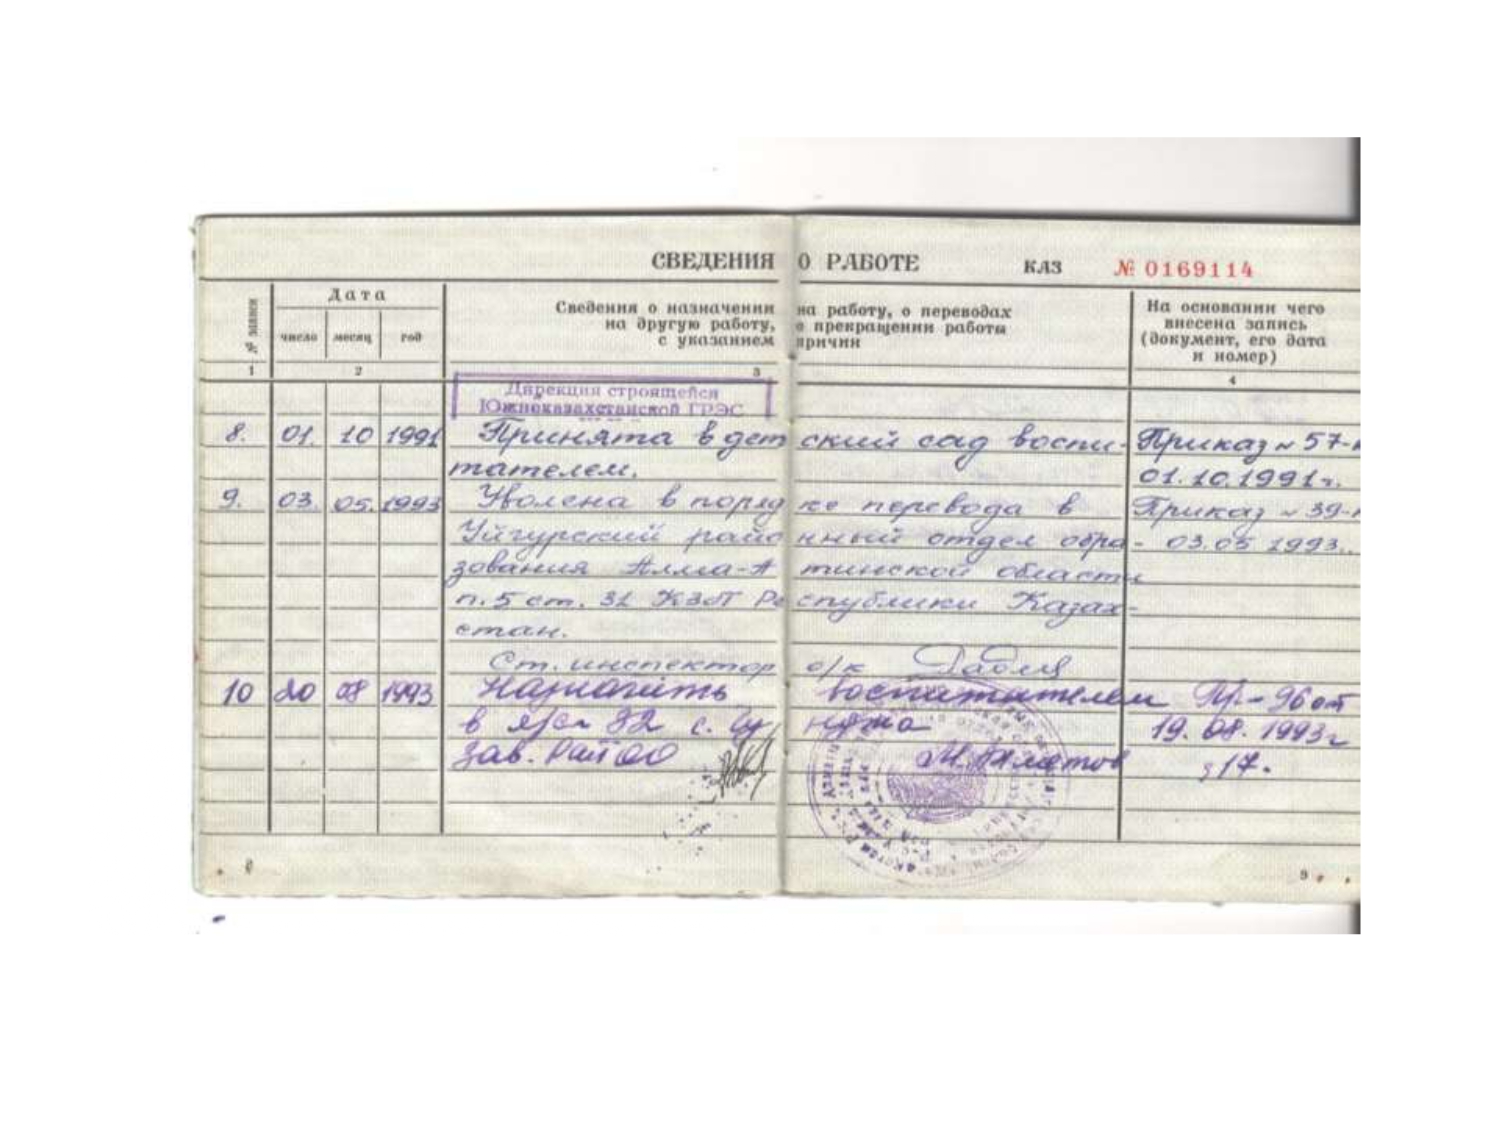 СВЕДЕНИЯ О РАБОТЕ КАЗ № 0169114
№ записи
Дата
число месяц год
Сведения о назначении на работу, о переводах
на другую работу, о прекращении работы
с указанием причин
На основании чего
внесена запись
(документ, его дата
и номер)
1 2 3 4
Дирекция строящейся
Южноказахстанской ГРЭС
8. 01. 10 1991 Принята в детский сад воспи- Приказ № 57-к
тателем. 01.10.1991г.
9. 03. 05. 1993 Уволена в порядке перевода в Приказ № 39-к
Уйгурский районный отдел обра- 03.05 1993.
зования Алма-Атинской области
п. 5 ст. 31 КЗоТ Республики Казах-
стан.
Ст. инспектор о/к
10 20 08 1993 Назначить воспитателем Пр-96 от
в я/с № 32 с. 19. 08. 1993г
Зав. РайОО М. Ахметов §17.
8
9